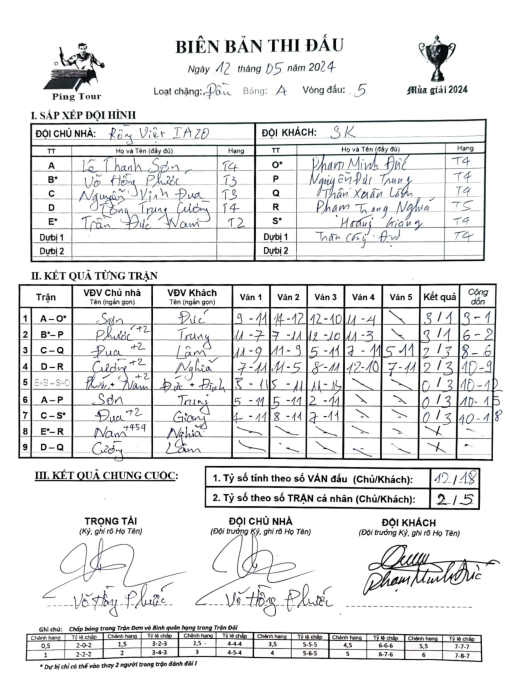 BIÊN BẢN THI ĐẤU
Ngày 12 tháng 05 năm 2024
Ping Tour
Loạt chặng: Đồn Bảng: A Vòng đấu: 5
Mùa giải 2024
I. SẮP XẾP ĐỘI HÌNH
ĐỘI CHỦ NHÀ: Rồng Việt IA20 ĐỘI KHÁCH: 3K
TT Họ và Tên (đầy đủ) Hạng TT Họ và Tên (đầy đủ) Hạng
A Lê Thanh Sơn T4 O* Phạm Minh Đức T4
B* Võ Hồng Phước T3 P Nguyễn Đức Trung T4
C Nguyễn Vịnh Đua T3 Q Thân Xuân Lâm T4
D Tống Trung Cường T4 R Phạm Trọng Nghĩa T5
E* Trần Đức Nam T2 S* Hoàng Giang T4
Dự bị 1 Dự bị 1 Trần Công T4
Dự bị 2 Dự bị 2
II. KẾT QUẢ TỪNG TRẬN
Trận VĐV Chủ nhà Tên (ngắn gọn) VĐV Khách Tên (ngắn gọn) Ván 1 Ván 2 Ván 3 Ván 4 Ván 5 Kết quả Cộng dồn
1 A – O* Sơn Đức 9 - 11 14 - 12 12 - 10 11 - 4 3/1 3-1
2 B* – P Phước +2 Trung 11 - 7 7 - 11 12 - 10 11 - 3 3/1 6-2
3 C – Q Đua +2 Lâm 11 - 9 11 - 9 5 - 11 7 - 11 5 - 11 2/3 8-6
4 D – R Cường Nghĩa 7 - 11 11 - 5 11 - 8 12-10 7 - 11 2/3 10-9
5 Phước + Nam Đức + Định 5 - 11 0/3 10-12
6 A – P Sơn Trung 5 - 11 5 - 11 2 - 11 0/3 10-15
7 C – S* Đua +2 Giang 7 - 11 8 - 11 7 - 11 0/3 10-18
8 E* – R Nam +454 Nghĩa
9 D – Q Cường Lâm
III. KẾT QUẢ CHUNG CUỘC:
1. Tỷ số tính theo số VÁN đấu (Chủ/Khách): 10/18
2. Tỷ số theo số TRẬN cá nhân (Chủ/Khách): 2/5
TRỌNG TÀI ĐỘI CHỦ NHÀ ĐỘI KHÁCH
(Ký, ghi rõ Họ Tên) (Đội trưởng Ký, ghi rõ Họ Tên) (Đội trưởng Ký, ghi rõ Họ Tên)
Võ Hồng Phước Võ Hồng Phước Phạm Minh Đức
Ghi chú: Chấp bóng trong Trận Đơn và Bình quân hạng trong Trận Đôi
Chênh hạng Tỷ lệ chấp Chênh hạng Tỷ lệ chấp Chênh hạng Tỷ lệ chấp Chênh hạng Tỷ lệ chấp Chênh hạng Tỷ lệ chấp Chênh hạng Tỷ lệ chấp
0,5 2-0-2 1,5 3-2-3 2,5 4-4-4 3,5 5-5-5 4,5 6-6-6 5,5 7-7-7
1 2-2-2 2 3-4-3 3 4-5-4 4 5-6-5 5 6-7-6 6 7-8-7
* Dự bị chỉ có thể vào thay 2 người trong trận đánh đôi !